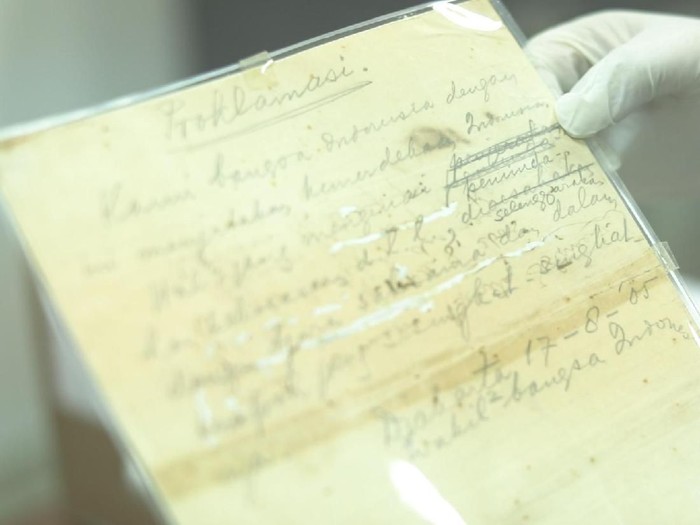 Proklamasi.
Kami bangsa Indonesia dengan
ini menjatakan kemerdekaan Indonesia
Hal2 jang mengenai peminda-
han kekoeasaan d.l.l., diselenggarakan
dengan tjara saksama dan dalam
tempoh jang sesingkat-singkat-
nja.
Djakarta 17-8-'05
Wakil2 bangsa Indones